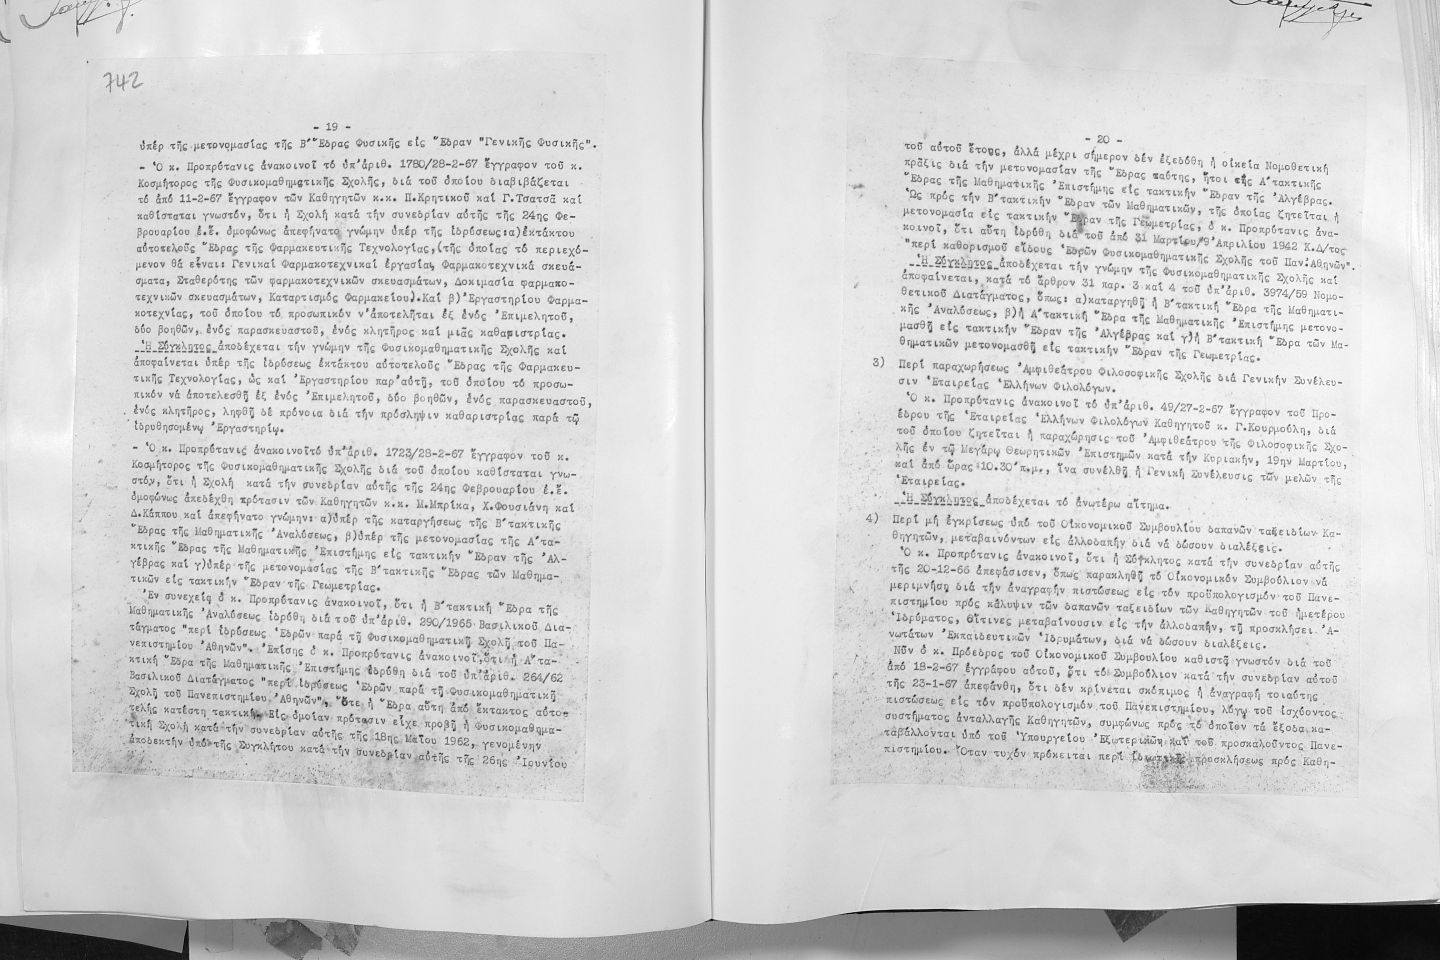 742
- 19 -
ὑπέρ τῆς μετονομασίας τῆς Β΄Ἕδρας Φυσικῆς εἰς Ἕδραν "Γενικῆς Φυσικῆς".
- Ὁ κ. Προπρύτανις ἀνακοινοῖ τό ὑπ'ἀριθ. 1780/28-2-67 ἔγγραφον τοῦ κ.
Κοσμήτορος τῆς Φυσικομαθηματικῆς Σχολῆς, διά τοῦ ὁποίου διαβιβάζεται
τό ἀπό 11-2-67 ἔγγραφον τῶν Καθηγητῶν κ.κ. Π.Κρητικοῦ καί Γ.Τσατσᾶ καί
καθίσταται γνωστόν, ὅτι ἡ Σχολή κατά τήν συνεδρίαν αὐτῆς τῆς 24ης Φε-
βρουαρίου ἐ.ἔ. ὁμοφώνως ἀπεφήνατο γνώμην ὑπέρ τῆς ἱδρύσεως:α)ἐκτάκτου
αὐτοτελοῦς Ἕδρας τῆς Φαρμακευτικῆς Τεχνολογίας,(τῆς ὁποίας τό περιεχό-
μενον θά εἶναι: Γενικαί Φαρμακοτεχνικαί ἐργασίαι, Φαρμακοτεχνικά σκευά-
σματα, Σταθερότης τῶν φαρμακοτεχνικῶν σκευασμάτων, Δοκιμασία φαρμακο-
τεχνικῶν σκευασμάτων, Καταρτισμός Φαρμακείου).Καί β)Ἐργαστηρίου Φαρμα-
κοτεχνίας, τοῦ ὁποίου τό προσωπικόν ν'ἀποτελῆται ἐξ ἑνός Ἐπιμελητοῦ,
δύο βοηθῶν, ἑνός παρασκευαστοῦ, ἑνός κλητῆρος καί μιᾶς καθαριστρίας.
Ἡ Σύγκλητος ἀποδέχεται τήν γνώμην τῆς Φυσικομαθηματικῆς Σχολῆς καί
ἀποφαίνεται ὑπέρ τῆς ἱδρύσεως ἐκτάκτου αὐτοτελοῦς Ἕδρας τῆς Φαρμακευ-
τικῆς Τεχνολογίας, ὡς καί Ἐργαστηρίου παρ'αὐτῇ, τοῦ ὁποίου τό προσω-
πικόν νά ἀποτελεσθῇ ἐξ ἑνός Ἐπιμελητοῦ, δύο βοηθῶν, ἑνός παρασκευαστοῦ,
ἑνός κλητῆρος, ληφθῇ δέ πρόνοια διά τήν πρόσληψιν καθαριστρίας παρά τῷ
ἱδρυθησομένῳ Ἐργαστηρίῳ.
- Ὁ κ. Προπρύτανις ἀνακοινοῖτό ὑπ'ἀριθ. 1723/28-2-67 ἔγγραφον τοῦ κ.
Κοσμήτορος τῆς Φυσικομαθηματικῆς Σχολῆς διά τοῦ ὁποίου καθίσταται γνω-
στόν, ὅτι ἡ Σχολή κατά τήν συνεδρίαν αὐτῆς τῆς 24ης Φεβρουαρίου ἐ.ἔ.
ὁμοφώνως ἀπεδέχθη πρότασιν τῶν Καθηγητῶν κ.κ. Μ.Μπρίκα, Χ.Φουσιάνη καί
Δ.Κάππου καί ἀπεφήνατο γνώμην: α)ὑπέρ τῆς καταργήσεως τῆς Β΄τακτικῆς
Ἕδρας τῆς Μαθηματικῆς Ἀναλύσεως, β)ὑπέρ τῆς μετονομασίας τῆς Α΄τα-
κτικῆς Ἕδρας τῆς Μαθηματικῆς Ἐπιστήμης εἰς τακτικήν Ἕδραν τῆς Ἀλ-
γέβρας καί γ)ὑπέρ τῆς μετονομασίας τῆς Β΄τακτικῆς Ἕδρας τῶν Μαθημα-
τικῶν εἰς τακτικήν Ἕδραν τῆς Γεωμετρίας.
Ἐν συνεχείᾳ ὁ κ. Προπρύτανις ἀνακοινοῖ, ὅτι ἡ Β΄τακτική Ἕδρα τῆς
Μαθηματικῆς Ἀναλύσεως ἱδρύθη διά τοῦ ὑπ'ἀριθ. 290/1966 Βασιλικοῦ Δια-
τάγματος "περί ἱδρύσεως Ἑδρῶν παρά τῇ Φυσικομαθηματικῇ Σχολῇ τοῦ Πα-
νεπιστημίου Ἀθηνῶν". Ἐπίσης ὁ κ. Προπρύτανις ἀνακοινοῖ,ὅτι ἡ Α΄τα-
κτική Ἕδρα τῆς Μαθηματικῆς Ἐπιστήμης ἱδρύθη διά τοῦ ὑπ'ἀριθ. 264/62
Βασιλικοῦ Διατάγματος "περί ἱδρύσεως Ἑδρῶν παρά τῇ Φυσικομαθηματικῇ
Σχολῇ τοῦ Πανεπιστημίου Ἀθηνῶν", ὅτε ἡ Ἕδρα αὕτη ἀπό ἔκτακτος αὐτο-
τελής κατέστη τακτική. Εἰς ὁμοίαν πρότασιν εἶχε προβῇ ἡ Φυσικομαθημα-
τική Σχολή κατά τήν συνεδρίαν αὐτῆς τῆς 18ης Μαΐου 1962, γενομένην
ἀποδεκτήν ὑπό τῆς Συγκλήτου κατά τήν συνεδρίαν αὐτῆς τῆς 26ης Ἰουνίου
- 20 -
τοῦ αὐτοῦ ἔτους, ἀλλά μέχρι σήμερον δέν ἐξεδόθη ἡ οἰκεία Νομοθετική
πρᾶξις διά τήν μετονομασίαν τῆς Ἕδρας ταύτης, ἤτοι τῆς Α΄τακτικῆς
Ἕδρας τῆς Μαθηματικῆς Ἐπιστήμης εἰς τακτικήν Ἕδραν τῆς Ἀλγέβρας.
Ὡς πρός τήν Β΄τακτικήν Ἕδραν τῶν Μαθηματικῶν, τῆς ὁποίας ζητεῖται ἡ
μετονομασία εἰς τακτικήν Ἕδραν τῆς Γεωμετρίας, ὁ κ. Προπρύτανις ἀνα-
κοινοῖ, ὅτι αὕτη ἱδρύθη διά τοῦ ἀπό 31 Μαρτίου/9 Ἀπριλίου 1942 Κ.Δ/τος
"περί καθορισμοῦ εἴδους Ἑδρῶν Φυσικομαθηματικῆς Σχολῆς τοῦ Παν.Ἀθηνῶν".
Ἡ Σύγκλητος ἀποδέχεται τήν γνώμην τῆς Φυσικομαθηματικῆς Σχολῆς καί
ἀποφαίνεται, κατά τό ἄρθρον 31 παρ. 3 καί 4 τοῦ ὑπ'ἀριθ. 3974/59 Νομο-
θετικοῦ Διατάγματος, ὅπως: α)καταργηθῇ ἡ Β΄τακτική Ἕδρα τῆς Μαθηματι-
κῆς Ἀναλύσεως, β)ἡ Α΄τακτική Ἕδρα τῆς Μαθηματικῆς Ἐπιστήμης μετονο-
μασθῇ εἰς τακτικήν Ἕδραν τῆς Ἀλγέβρας καί γ)ἡ Β΄τακτική Ἕδρα τῶν Μα-
θηματικῶν μετονομασθῇ εἰς τακτικήν Ἕδραν τῆς Γεωμετρίας.
3) Περί παραχωρήσεως Ἀμφιθεάτρου Φιλοσοφικῆς Σχολῆς διά Γενικήν Συνέλευ-
σιν Ἑταιρείας Ἑλλήνων Φιλολόγων.
Ὁ κ. Προπρύτανις ἀνακοινοῖ τό ὑπ'ἀριθ. 49/27-2-67 ἔγγραφον τοῦ Προ-
έδρου τῆς Ἑταιρείας Ἑλλήνων Φιλολόγων Καθηγητοῦ κ. Γ.Κουρμούλη, διά
τοῦ ὁποίου ζητεῖται ἡ παραχώρησις τοῦ Ἀμφιθεάτρου τῆς Φιλοσοφικῆς Σχο-
λῆς ἐν τῷ Μεγάρῳ Θεωρητικῶν Ἐπιστημῶν κατά τήν Κυριακήν, 19ην Μαρτίου,
καί ἀπό ὥρας 10.30΄π.μ., ἵνα συνέλθῃ ἡ Γενική Συνέλευσις τῶν μελῶν τῆς
Ἑταιρείας.
Ἡ Σύγκλητος ἀποδέχεται τό ἀνωτέρω αἴτημα.
4) Περί μή ἐγκρίσεως ὑπό τοῦ Οἰκονομικοῦ Συμβουλίου δαπανῶν ταξειδίων Κα-
θηγητῶν, μεταβαινόντων εἰς ἀλλοδαπήν διά νά δώσουν διαλέξεις.
Ὁ κ. Προπρύτανις ἀνακοινοῖ, ὅτι ἡ Σύγκλητος κατά τήν συνεδρίαν αὐτῆς
τῆς 20-12-66 ἀπεφάσισεν, ὅπως παρακληθῇ τό Οἰκονομικόν Συμβούλιον νά
μεριμνήσῃ διά τήν ἀναγραφήν πιστώσεως εἰς τόν προϋπολογισμόν τοῦ Πανε-
πιστημίου πρός κάλυψιν τῶν δαπανῶν ταξειδίων τῶν Καθηγητῶν τοῦ ἡμετέρου
Ἱδρύματος, οἵτινες μεταβαίνουσιν εἰς τήν ἀλλοδαπήν, τῇ προσκλήσει Ἀ-
νωτάτων Ἐκπαιδευτικῶν Ἱδρυμάτων, διά νά δώσουν διαλέξεις.
Νῦν ὁ κ. Πρόεδρος τοῦ Οἰκονομικοῦ Συμβουλίου καθιστᾷ γνωστόν διά τοῦ
ἀπό 18-2-67 ἐγγράφου αὐτοῦ, ὅτι τό Συμβούλιον κατά τήν συνεδρίαν αὐτοῦ
τῆς 23-1-67 ἀπεφάνθη, ὅτι δέν κρίνεται σκόπιμος ἡ ἀναγραφή τοιαύτης
πιστώσεως εἰς τόν προϋπολογισμόν τοῦ Πανεπιστημίου, λόγῳ τοῦ ἰσχύοντος
συστήματος ἀνταλλαγῆς Καθηγητῶν, συμφώνως πρός τό ὁποῖον τά ἔξοδα κα-
ταβάλλονται ὑπό τοῦ Ὑπουργείου Ἐξωτερικῶν καί τοῦ προσκαλοῦντος Πανε-
πιστημίου. Ὅταν τυχόν πρόκειται περί ἰδιωτικῆς προσκλήσεως πρός Καθη-